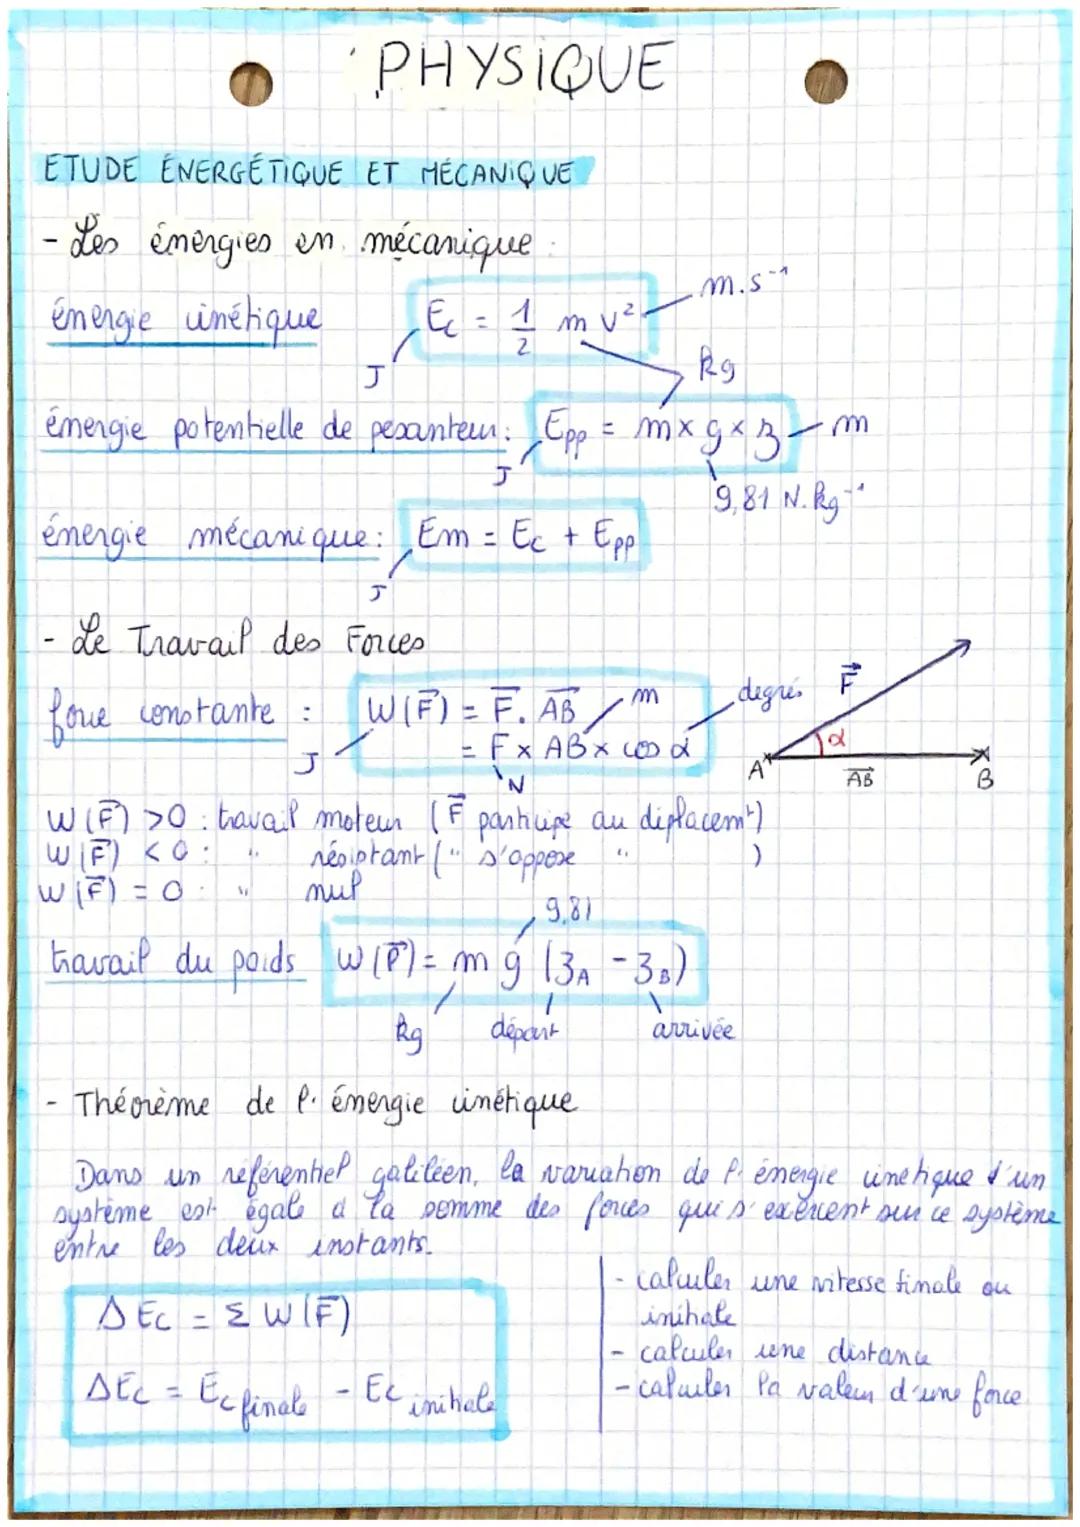 PHYSIQUE
ETUDE ÉNERGÉTIQUE ET MÉCANIQUE
- Les énergies en mécanique :
énergie cinétique Ec = 1/2 m v² m.s⁻¹
J kg
énergie potentielle de pesanteur : Epp = m × g × z m
J 9,81 N.kg⁻¹
énergie mécanique : Em = Ec + Epp
J
- Le Travail des Forces
force constante : W(F⃗) = F⃗. AB⃗ m degrés F⃗
J = F × AB × cos α α
N A AB⃗ B
W(F⃗) > 0 : travail moteur (F⃗ participe au déplacemt)
W(F⃗) < 0 : " résistant (" s'oppose " )
W(F⃗) = 0 : " nul
9,81
travail du poids W(P⃗) = m g (zA - zB)
kg départ arrivée
- Théorème de l'énergie cinétique
Dans un référentiel galiléen, la variation de l'énergie cinetique d'un
système est égale à la somme des forces qui s'exercent sur ce système
entre les deux instants.
Δ Ec = Σ W(F⃗)
ΔEc = Ec finale - Ec initiale
- calculer une vitesse finale ou
initiale
- calculer une distance
- calculer la valeur d'une force